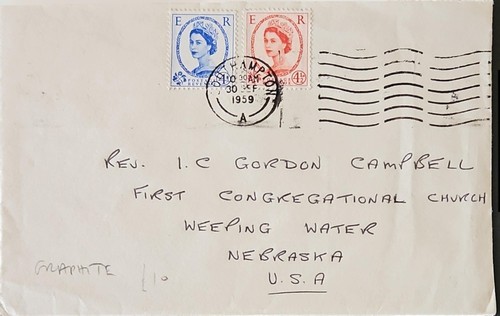 E R E R
4½
SOUTHAMPTON
30 SEP
1959
A
REV. I.C GORDON CAMPBELL
FIRST CONGREGATIONAL CHURCH
WEEPING WATER
NEBRASKA
U.S.A
GRAPHITE £10